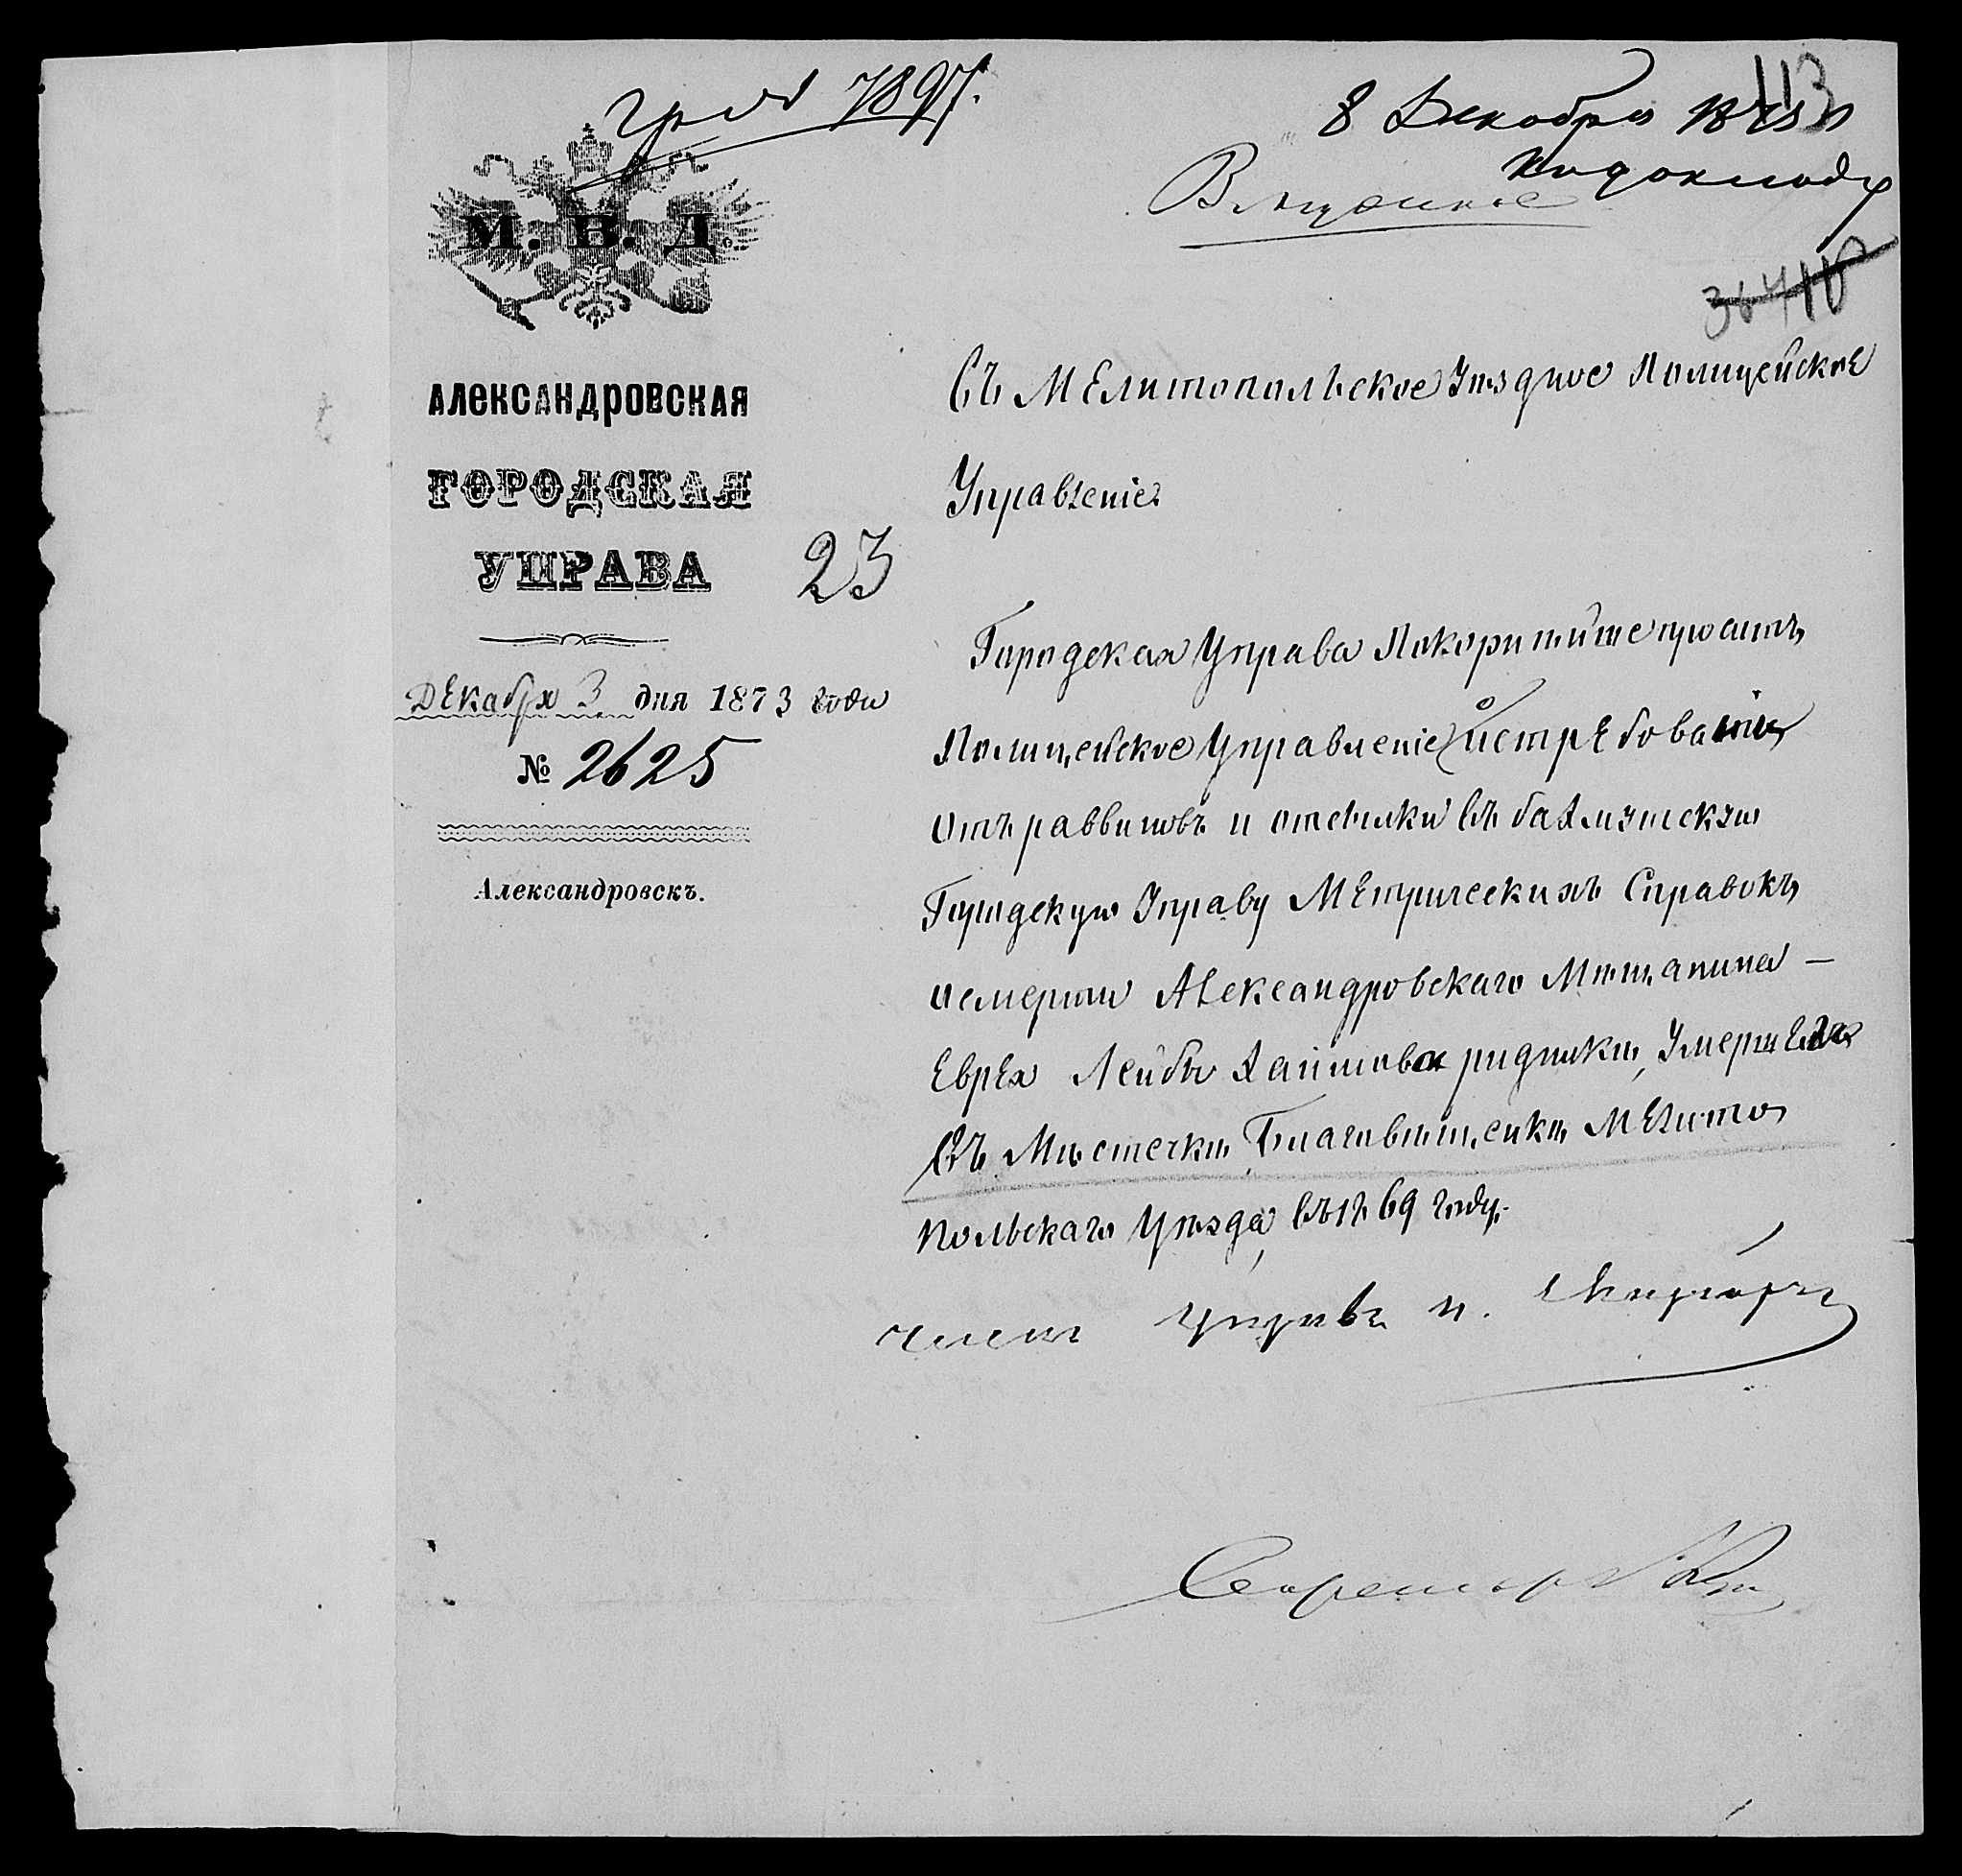 7897.
113
8 Декабря 1873 г
Къ докладу
М. В. Д.
36410
АЛЕКСАНДРОВСКАЯ
ГОРОДСКАЯ
УПРАВА
23
Декабря 3 дня 1873 года
№ 2625
Александровскъ.
Въ Мелитопольское Уѣздное Полицейское
Управленіе
Городская Управа Покорнѣйше проситъ
Полицейское Управленіе о истребованіи
отъ раввиновъ и отсылки въ бахмутскую
Городскую Управу Метрическихъ Справокъ
о смерти Александровскаго Мѣщанина –
Еврея Лейбы Хаимова, Умершаго
Въ Мѣстечкѣ Благовѣщенкѣ Мелито
польскаго Уѣзда, въ 1869 году.
Членъ Управы
Секретарь